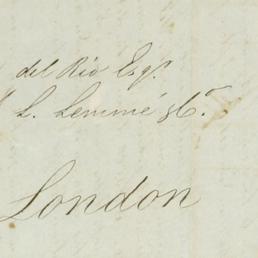 del Rio Esqr.
L. Lemmé & Co.
London